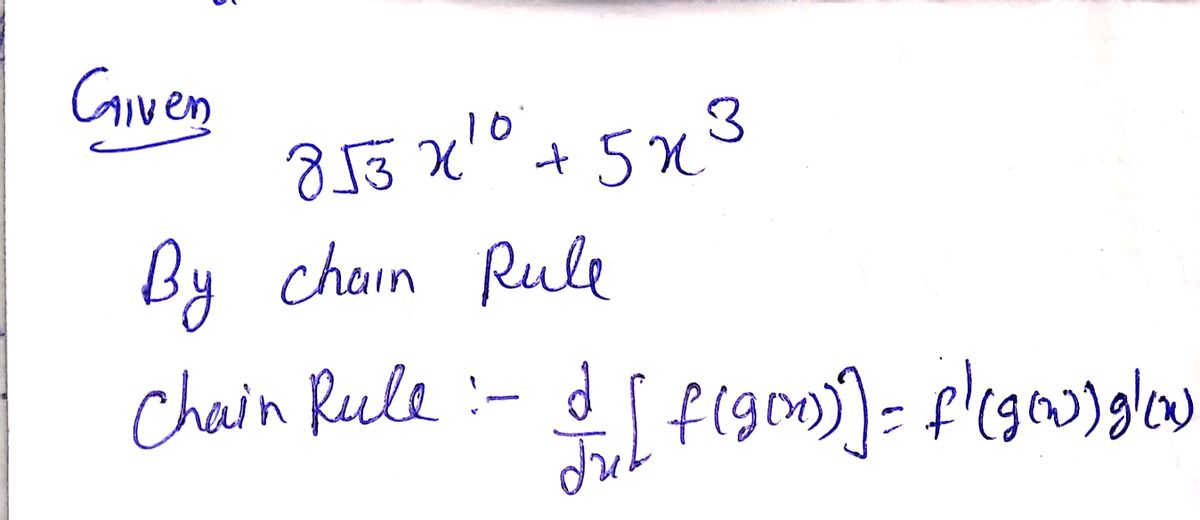 Given
8√3 x¹⁰ + 5x³
By chain Rule
Chain Rule :- d/dx [f(g(x))] = f'(g(x))g'(x)